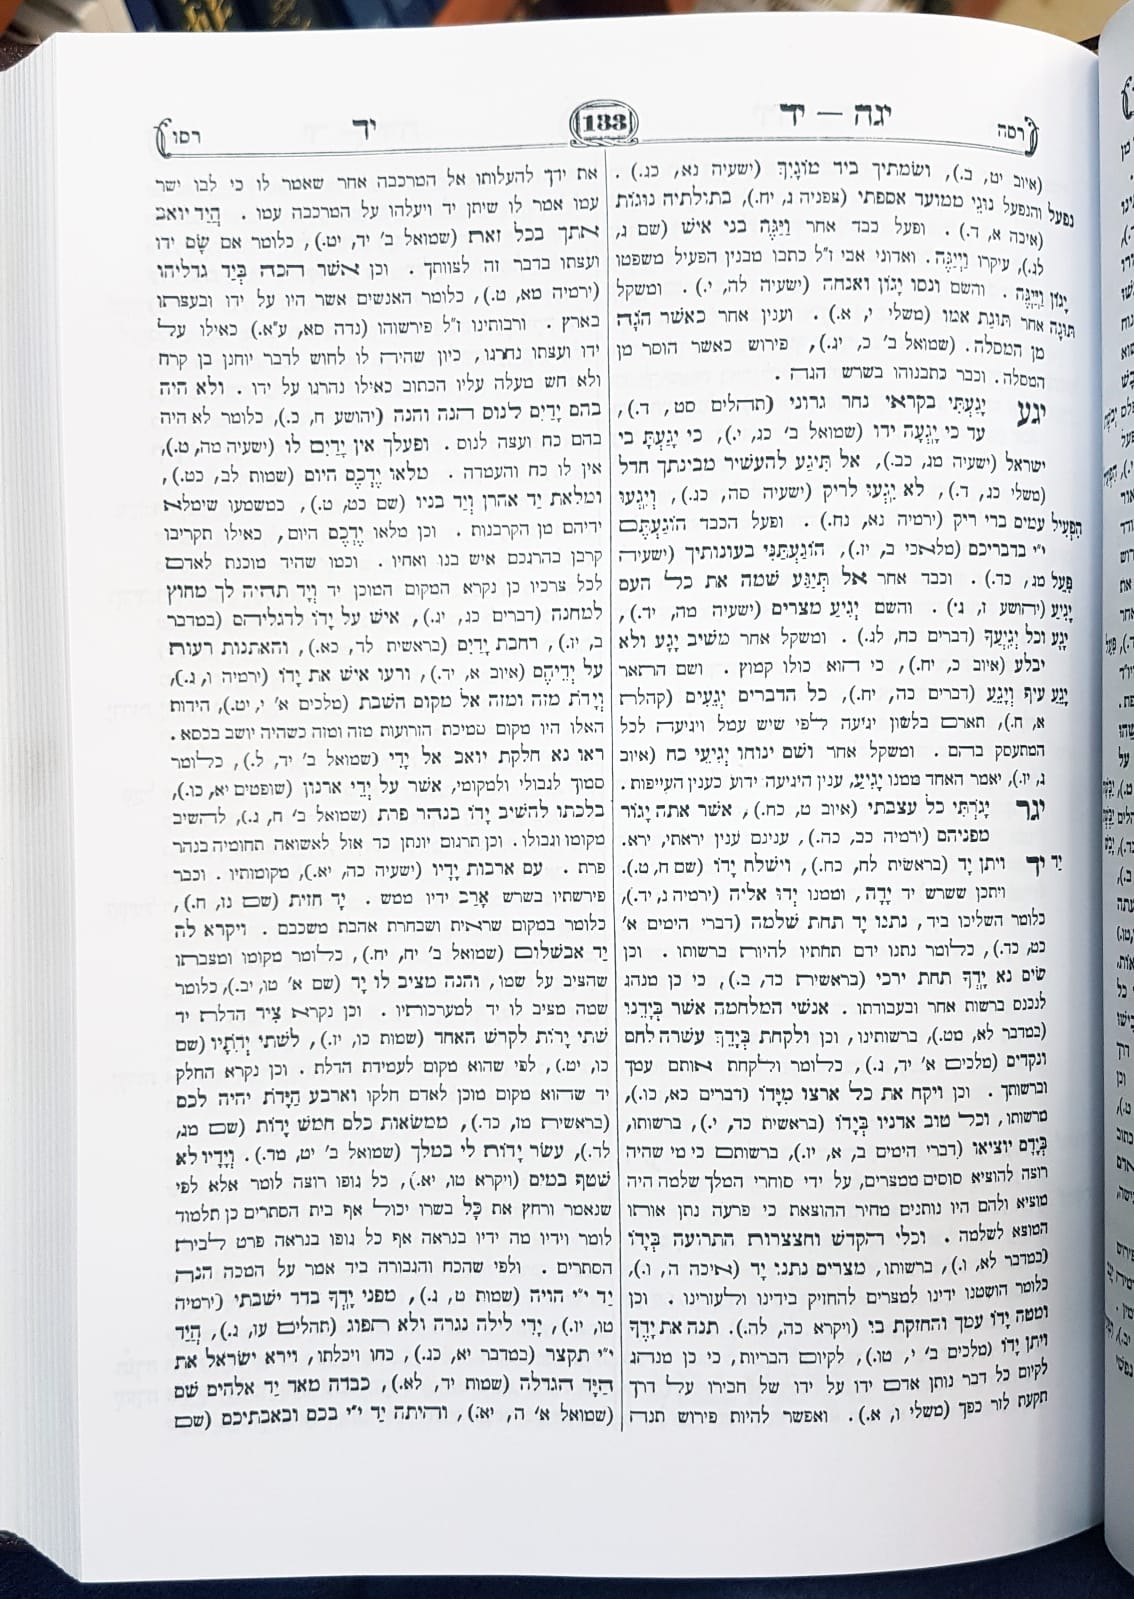 רסה
יגה — יד
133
יד
רסו
(איוב יט, ב.), ושמתיך ביד מוֹגַיִךְ (ישעיה נא, כג.) .
נפעל והנפעל נוּגֵי ממועד אספתי (צפניה ג, יח.), בתולתיה נוּגוֹת
(איכה א, ד.) . ופעל כבד אחר וַיַּגֶּה בני איש (שם ג,
לג.), עיקרו וַיְיַגֶּה. ואדוני אבי ז"ל כתבו מבנין הפעיל משפטו
יָגוֹן וַיַּיְגֶּה . והשם ונסו יָגוֹן ואנחה (ישעיה לה, י.) . ומשקל
תּוּגָה אחר תּוּגַת אמו (משלי י, א.) . וענין אחר כאשר הֹגָה
מן המסלה. (שמואל ב' כ, יג.), פירוש כאשר הוסר מן
המסלה. וכבר כתבנוהו בשרש הגה .
יגע יָגַעְתִּי בקראי נחר גרוני (תהלים סט, ד.),
עד כי יָגְעָה ידו (שמואל ב' כג, י.), כי יָגַעְתָּ בי
ישראל (ישעיה מג, כב.), אל תִּיגַע להעשיר מבינתך חדל
(משלי כג, ד.), לא יִגְעוּ לריק (ישעיה סה, כג.), וְיִגְעוּ
הִפְעִיל עמים בדי ריק (ירמיה נא, נח.) . ופעל הכבד הוֹגַעְתֶּם
י"י בדבריכם (מלאכי ב, יז.), הוֹגַעְתַּנִי בעונותיך (ישעיה
פָּעַל מג, כד.) . וכבד אחר אל תְּיַגַּע שמה את כל העם
יָגִיעַ (יהושע ז, ג.) . והשם יְגִיעַ מצרים (ישעיה מה, יד.),
יָגָע וכל יְגִיעֶךָ (דברים כח, לג.) . ומשקל אחר משיב יָגָע ולא
יבלע (איוב כ, יח.), כי הוא כולו קמוץ . ושם התאר
יָגֵעַ עיף וְיָגֵעַ (דברים כה, יח.), כל הדברים יְגֵעִים (קהלת
א, ח.), תארם בלשון יגיעה לפי שיש עמל ויגיעה לכל
המתעסק בהם . ומשקל אחר ושם ינוחו יְגִיעֵי כח (איוב
ג, יז.), יאמר האחד ממנו יָגִיעַ, ענין היגיעה ידוע כענין העייפות.
יגר יָגֹרְתִּי כל עצבתי (איוב ט, כח.), אשר אתה יָגוֹר
מפניהם (ירמיה כב, כה.), ענינם ענין יראתי, ירא.
יַד יד ויתן יָד (בראשית לח, כח.), וישלח יָדוֹ (שם ח, ט.).
ויתכן ששרש יד יָדָה, וממנו יְדוּ אליה (ירמיה נ, יד.),
כלומר השליכו ביד, נתנו יָד תחת שלמה (דברי הימים א'
כט, כד.), כלומר נתנו ידם תחתיו להיות ברשותו . וכן
שים נא יָדְךָ תחת ירכי (בראשית כד, ב.), כי כן מנהג
לנכנס ברשות אחר ובעבודתו . אנשי המלחמה אשר בְּיָדֵנוּ
(במדבר לא, מט.), ברשותינו, וכן ולקחת בְּיָדְךָ עשרה לחם
ונקדים (מלכים א' יד, ג.), כלומר ולקחת אותם עמך
וברשותך . וכן ויקח את כל ארצו מִיָּדוֹ (דברים כא, כו.),
מרשותו, וכל טוב אדניו בְּיָדוֹ (בראשית כד, י.), ברשותו,
בְּיָדָם יוציאו (דברי הימים ב, א, יז.), ברשותם כי מי שהיה
רוצה להוציא סוסים ממצרים, על ידי סוחרי המלך שלמה היה
מוציא ולהם היו נותנים מחיר ההוצאת כי פרעה נתן אותו
המוצא לשלמה . וכלי הקדש וחצצרות התרועה בְּיָדוֹ
(במדבר לא, ו.), ברשותו, מצרים נתנו יָד (איכה ה, ו.),
כלומר הושטנו ידינו למצרים להחזיק בידינו ולעזורנו . וכן
ומטה יָדוֹ עמך והחזקת בו (ויקרא כה, לה.). תנה את יָדְךָ
ויתן יָדוֹ (מלכים ב' י, טו.), לקיום הבריות, כי כן מנהג
לקיום כל דבר נותן אדם ידו על ידו של חבירו על דרך
תקעת לזר כפך (משלי ו, א.). ואפשר להיות פירוש תנה
את ידך להעלותו אל המרכבה אחר שאמר לו כי לבו ישר
עמו אמר לו שיתן יד ויעלהו על המרכבה עמו . הֲיַד יואב
אתך בכל זאת (שמואל ב' יד, יט.), כלומר אם שָׂם ידו
ועצתו בדבר זה לצוותך . וכן אשר הכה בְּיַד גדליהו
(ירמיה מא, ט.), כלומר האנשים אשר היו על ידו ובעצתו
בארץ . ורבותינו ז"ל פירשוהו (נדה סא, ע"א.) כאילו על
ידו ועצתו נהרגו, כיון שהיה לו לחוש לדבר יוחנן בן קרח
ולא חש מעלה עליו הכתוב כאילו נהרגו על ידו . ולא היה
בהם יָדַיִם לנוס הנה והנה (יהושע ח, כ.), כלומר לא היה
בהם כח ועצה לנוס . ופעלך אין יָדַיִם לו (ישעיה מה, ט.),
אין לו כח והעמדה . מלאו יֶדְכֶם היום (שמות לב, כט.),
ומלאת יַד אהרן וְיַד בניו (שם כט, ט.), כמשמעו שימלא
ידיהם מן הקרבנות . וכן מלאו יֶדְכֶם היום, כאילו תקריבו
קרבן בהרגכם איש בנו ואחיו . וכמו שהיד מוכנת לאדם
לכל צרכיו כן נקרא המקום המוכן יד וְיָד תהיה לך מחוץ
למחנה (דברים כג, יג.), איש על יָדוֹ לדגליהם (במדבר
ב, יז.), רחבת יָדַיִם (בראשית לד, כא.), והאתנות רעות
על יְדֵיהֶם (איוב א, יד.), ורעו איש את יָדוֹ (ירמיה ו, ג.),
וְיָדֹת מזה ומזה אל מקום השבת (מלכים א' י, יט.), הידות
האלו היו מקום סמיכת הזרועות מזה ומזה כשהיה יושב בכסא.
ראו נא חלקת יואב אל יָדִי (שמואל ב' יד, ל.), כלומר
סמוך לגבולי ולמקומי, אשר על יְדֵי ארנון (שופטים יא, כו.),
בלכתו להשיב יָדוֹ בנהר פרת (שמואל ב' ח, ג.), להשיב
מקומו וגבולו. וכן תרגום יונתן כד אזל לאשואה תחומיה בנהר
פרת . עם ארבות יָדָיו (ישעיה כה, יא.), מקומותיו . וכבר
פירשתיו בשרש אָרַב ידיו ממש . יָד חזית (שם נז, ח.),
כלומר במקום שראית ושבחרת אהבת משכבם . ויקרא לה
יַד אבשלום (שמואל ב' יח, יח.), כלומר מקומו ומצבתו
שהציב על שמו, והנה מציב לו יָד (שם א' טו, יב.), כלומר
שמה מציב לו יד למערכותיו . וכן נקרא צִיר הדלת יד
שתי יָדוֹת לקרש האחד (שמות כו, יז.), לשתי יְדֹתָיו (שם
כו, יט.), לפי שהוא מקום לעמידת הדלת . וכן נקרא החלק
יד שהוא מקום מוכן לאדם חלקו וארבע הַיָּדֹת יהיה לכם
(בראשית מז, כד.), ממשאות כלם חמש יָדוֹת (שם מג,
לד.), עשר יָדוֹת לי במלך (שמואל ב' יט, מד.). וְיָדָיו לא
שטף במים (ויקרא טו, יא.), כל גופו רוצה לומר אלא לפי
שנאמר ורחץ את כָּל בשרו יכול אף בית הסתרים כן תלמוד
לומר וידיו מה ידיו בנראה אף כל גופו בנראה פרט לבית
הסתרים . ולפי שהכח והגבורה ביד אמר על המכה הנה
יַד י"י הויה (שמות ט, ג.), מפני יָדְךָ בדד ישבתי (ירמיה
טו, יז.), יָדִי לילה נגרה ולא תפוג (תהלים עז, ג.), הֲיַד
י"י תקצר (במדבר יא, כג.), כחו ויכלתו, וירא ישראל את
הַיָּד הגדלה (שמות יד, לא.), כבדה מאד יַד אלהים שם
(שמואל א' ה, יא.), והיתה יַד י"י בכם ובאבתיכם (שם